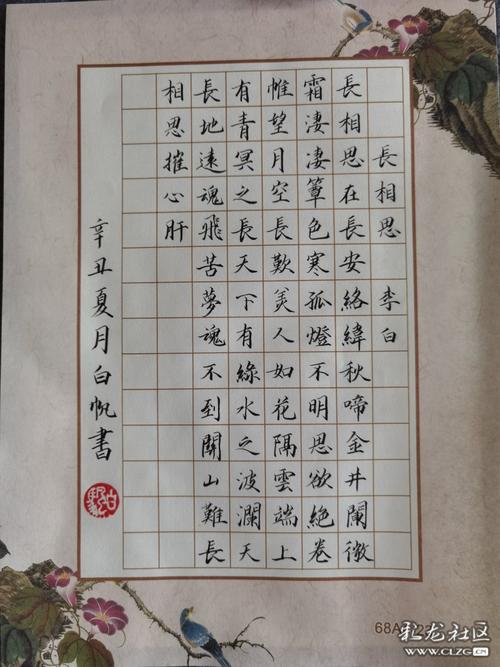 長相思 李白
長相思在長安絡緯秋啼金井闌微
霜淒淒簟色寒孤燈不明思欲絕卷
帷望月空長歎美人如花隔雲端上
有青冥之長天下有綠水之波瀾天
長地遠魂飛苦夢魂不到關山難長
相思摧心肝
辛丑夏月白帆書
68A
彩龙社区
WWW.CLZG.CN